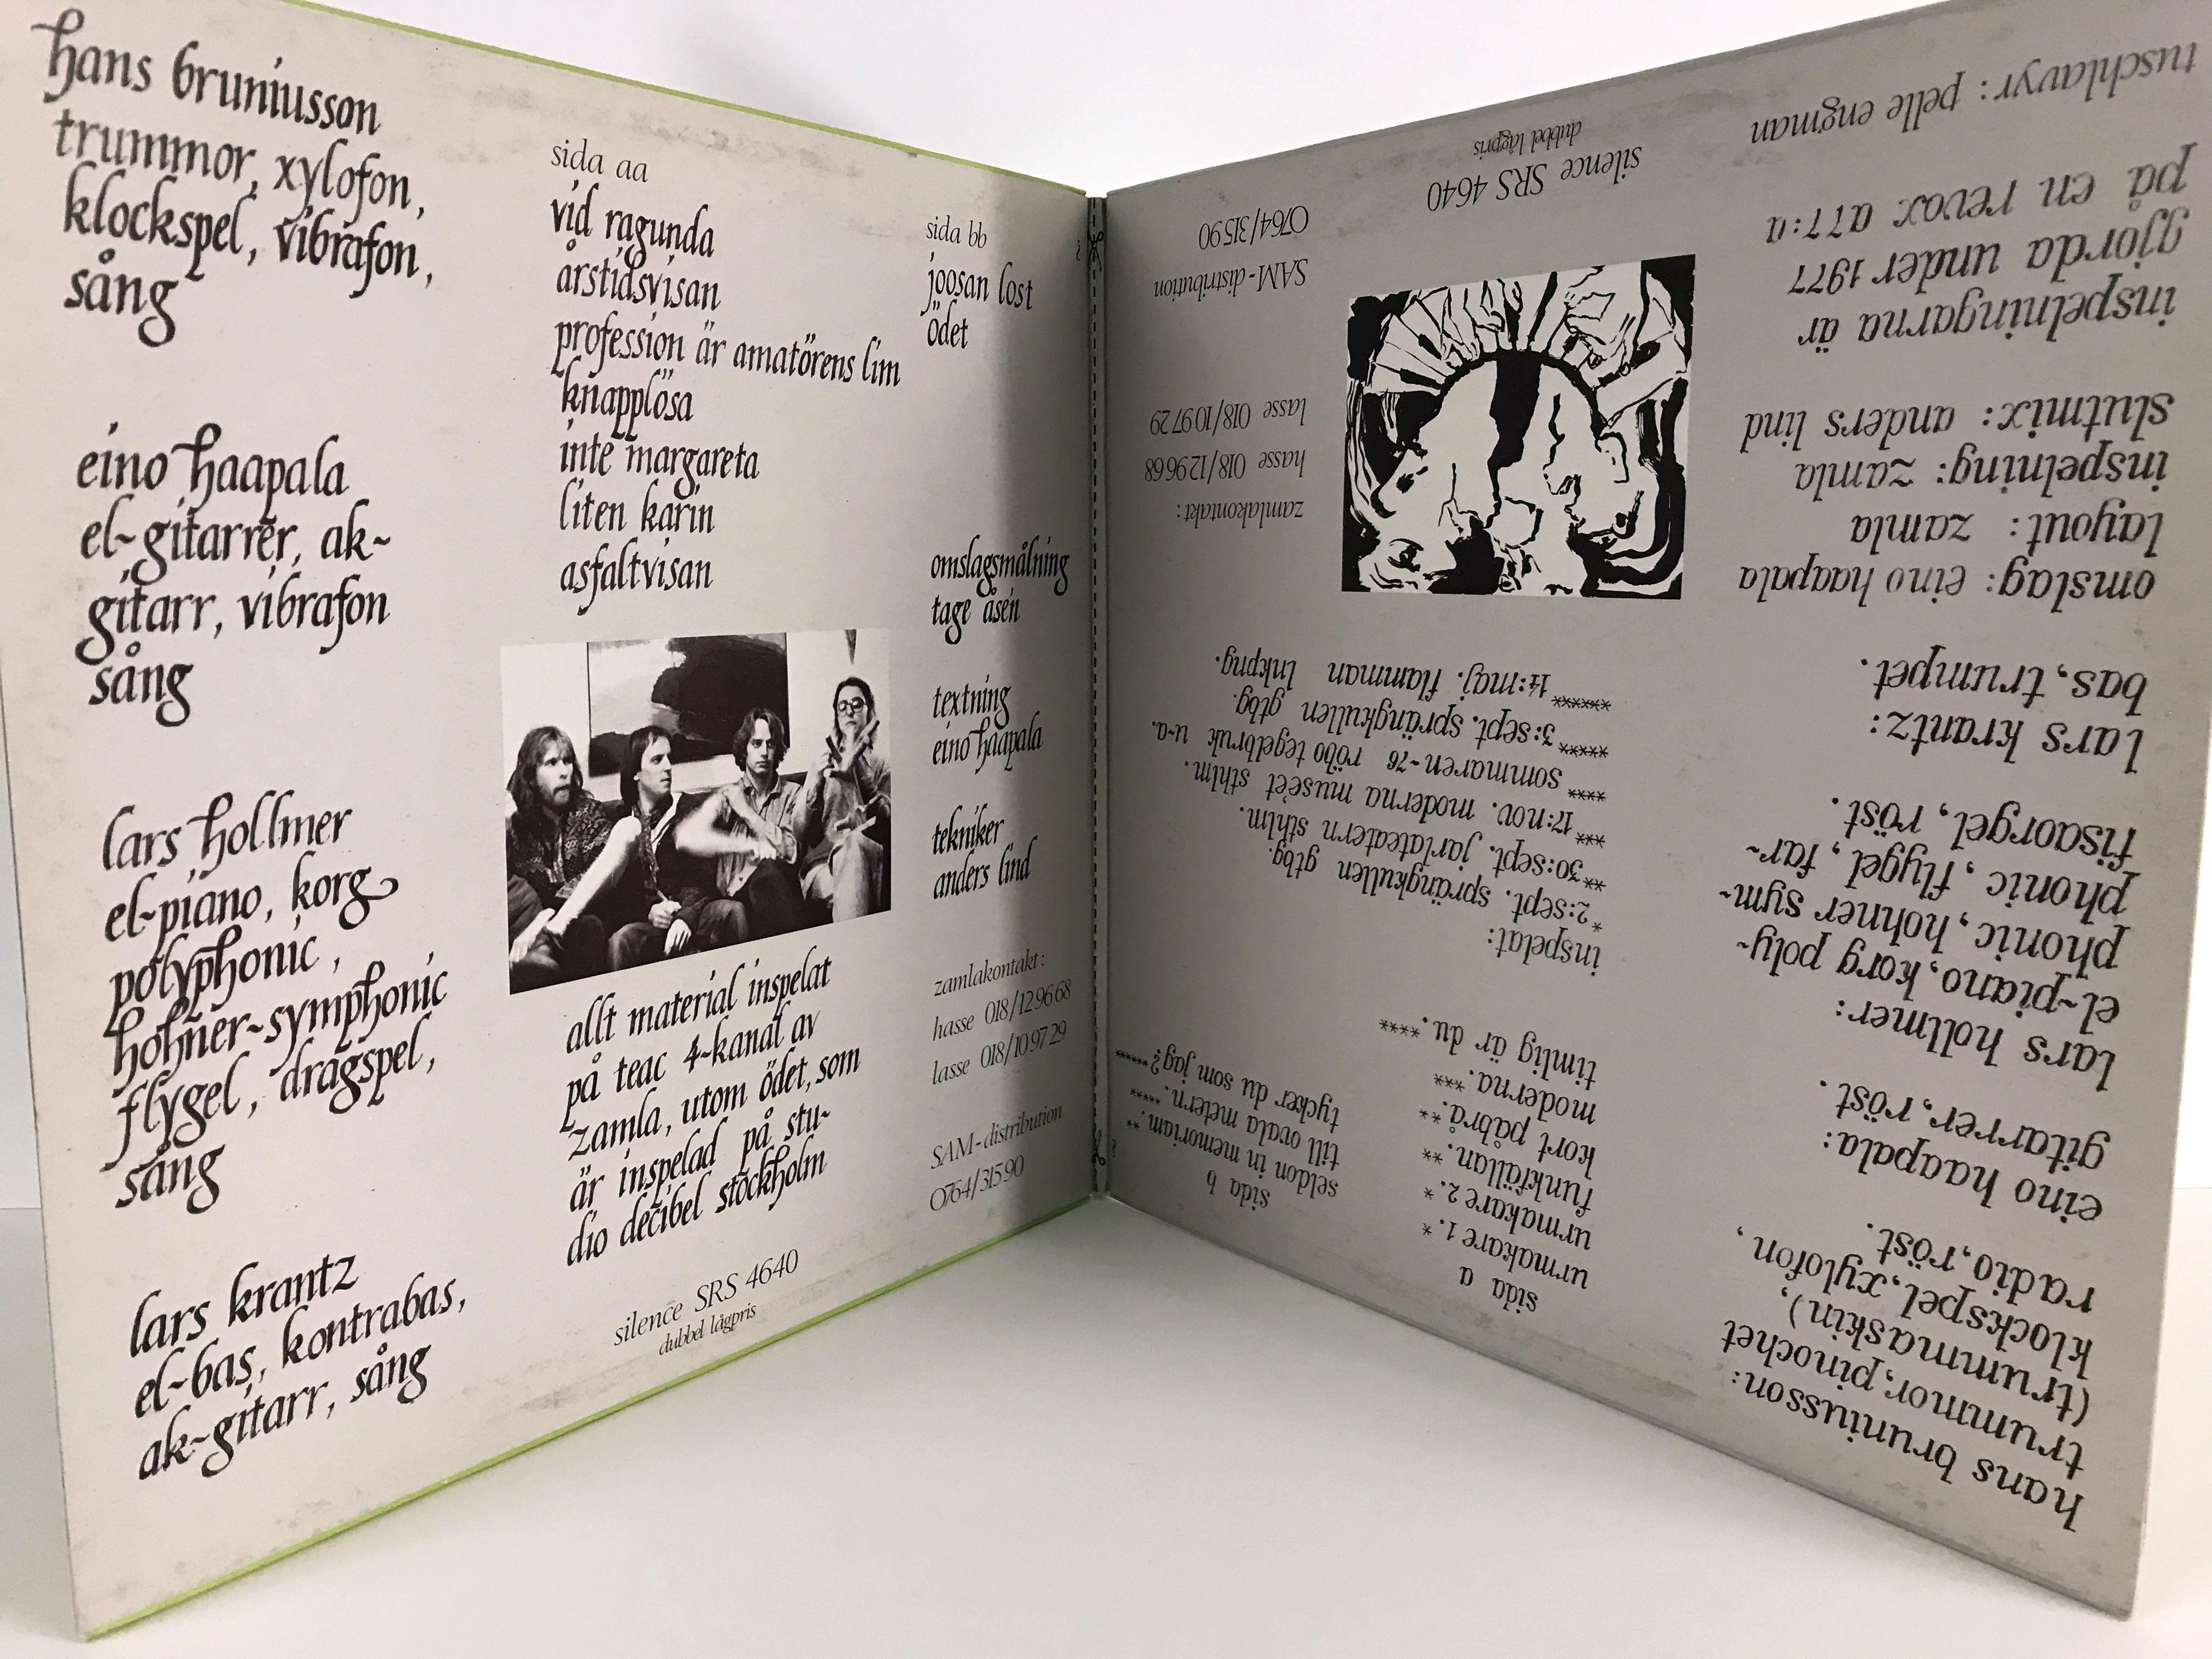 hans bruniusson
trummor, xylofon,
klockspel, vibrafon,
sång
eino haapala
el-gitarrer, ak-
gitarr, vibrafon
sång
lars hollmer
el-piano, korg
polyphonic,
hohner-symphonic
flygel, dragspel,
sång
lars krantz
el-bas, kontrabas,
ak-gitarr, sång
sida aa
vid ragunda
årstidsvisan
profession är amatörens lim
knapplösa
inte margareta
liten karin
asfaltvisan
allt material inspelat
på teac 4-kanal av
zamla, utom ödet, som
är inspelad på stu-
dio decibel stockholm
silence SRS 4640
dubbel lågpris
sida bb
joosan lost
ödet
omslagsmålning
tage åsén
textning
eino haapala
tekniker
anders lind
zamlakontakt:
hasse 018/129668
lasse 018/109729
SAM-distribution
0764/31590
hans bruniusson:
trummor, pinochet
(trummaskin),
klockspel, xylofon,
radio, röst.
eino haapala:
gitarrer, röst.
lars hollmer:
el-piano, korg poly-
phonic, hohner sym-
phonic, flygel, far-
fisaorgel, röst.
lars krantz:
bas, trumpet.
omslag: eino haapala
layout: zamla
inspelning: zamla
slutmix: anders lind
inspelningarna är
gjorda under 1977
på en revox a77:a
tuschlavyr: pelle engman
sida a
urmakare 1. *
urmakare 2. *
funkfällan. **
kort påbrå. **
moderna. ***
timlig är du. ****
inspelat:
* 2:sept. sprängkullen gtbg.
** 30:sept. jarlateatern sthlm.
*** 17:nov. moderna muséet sthlm.
**** sommaren-76 röbo tegelbruk u-a.
***** 3:sept. sprängkullen gtbg.
****** 14:maj. flamman lnkpng.
silence SRS 4640
dubbel lågpris
sida b
seldon in memoriam. **
till ovala metern. *****
tycker du som jag? ******
zamlakontakt:
hasse 018/129668
lasse 018/109729
SAM-distribution
0764/31590